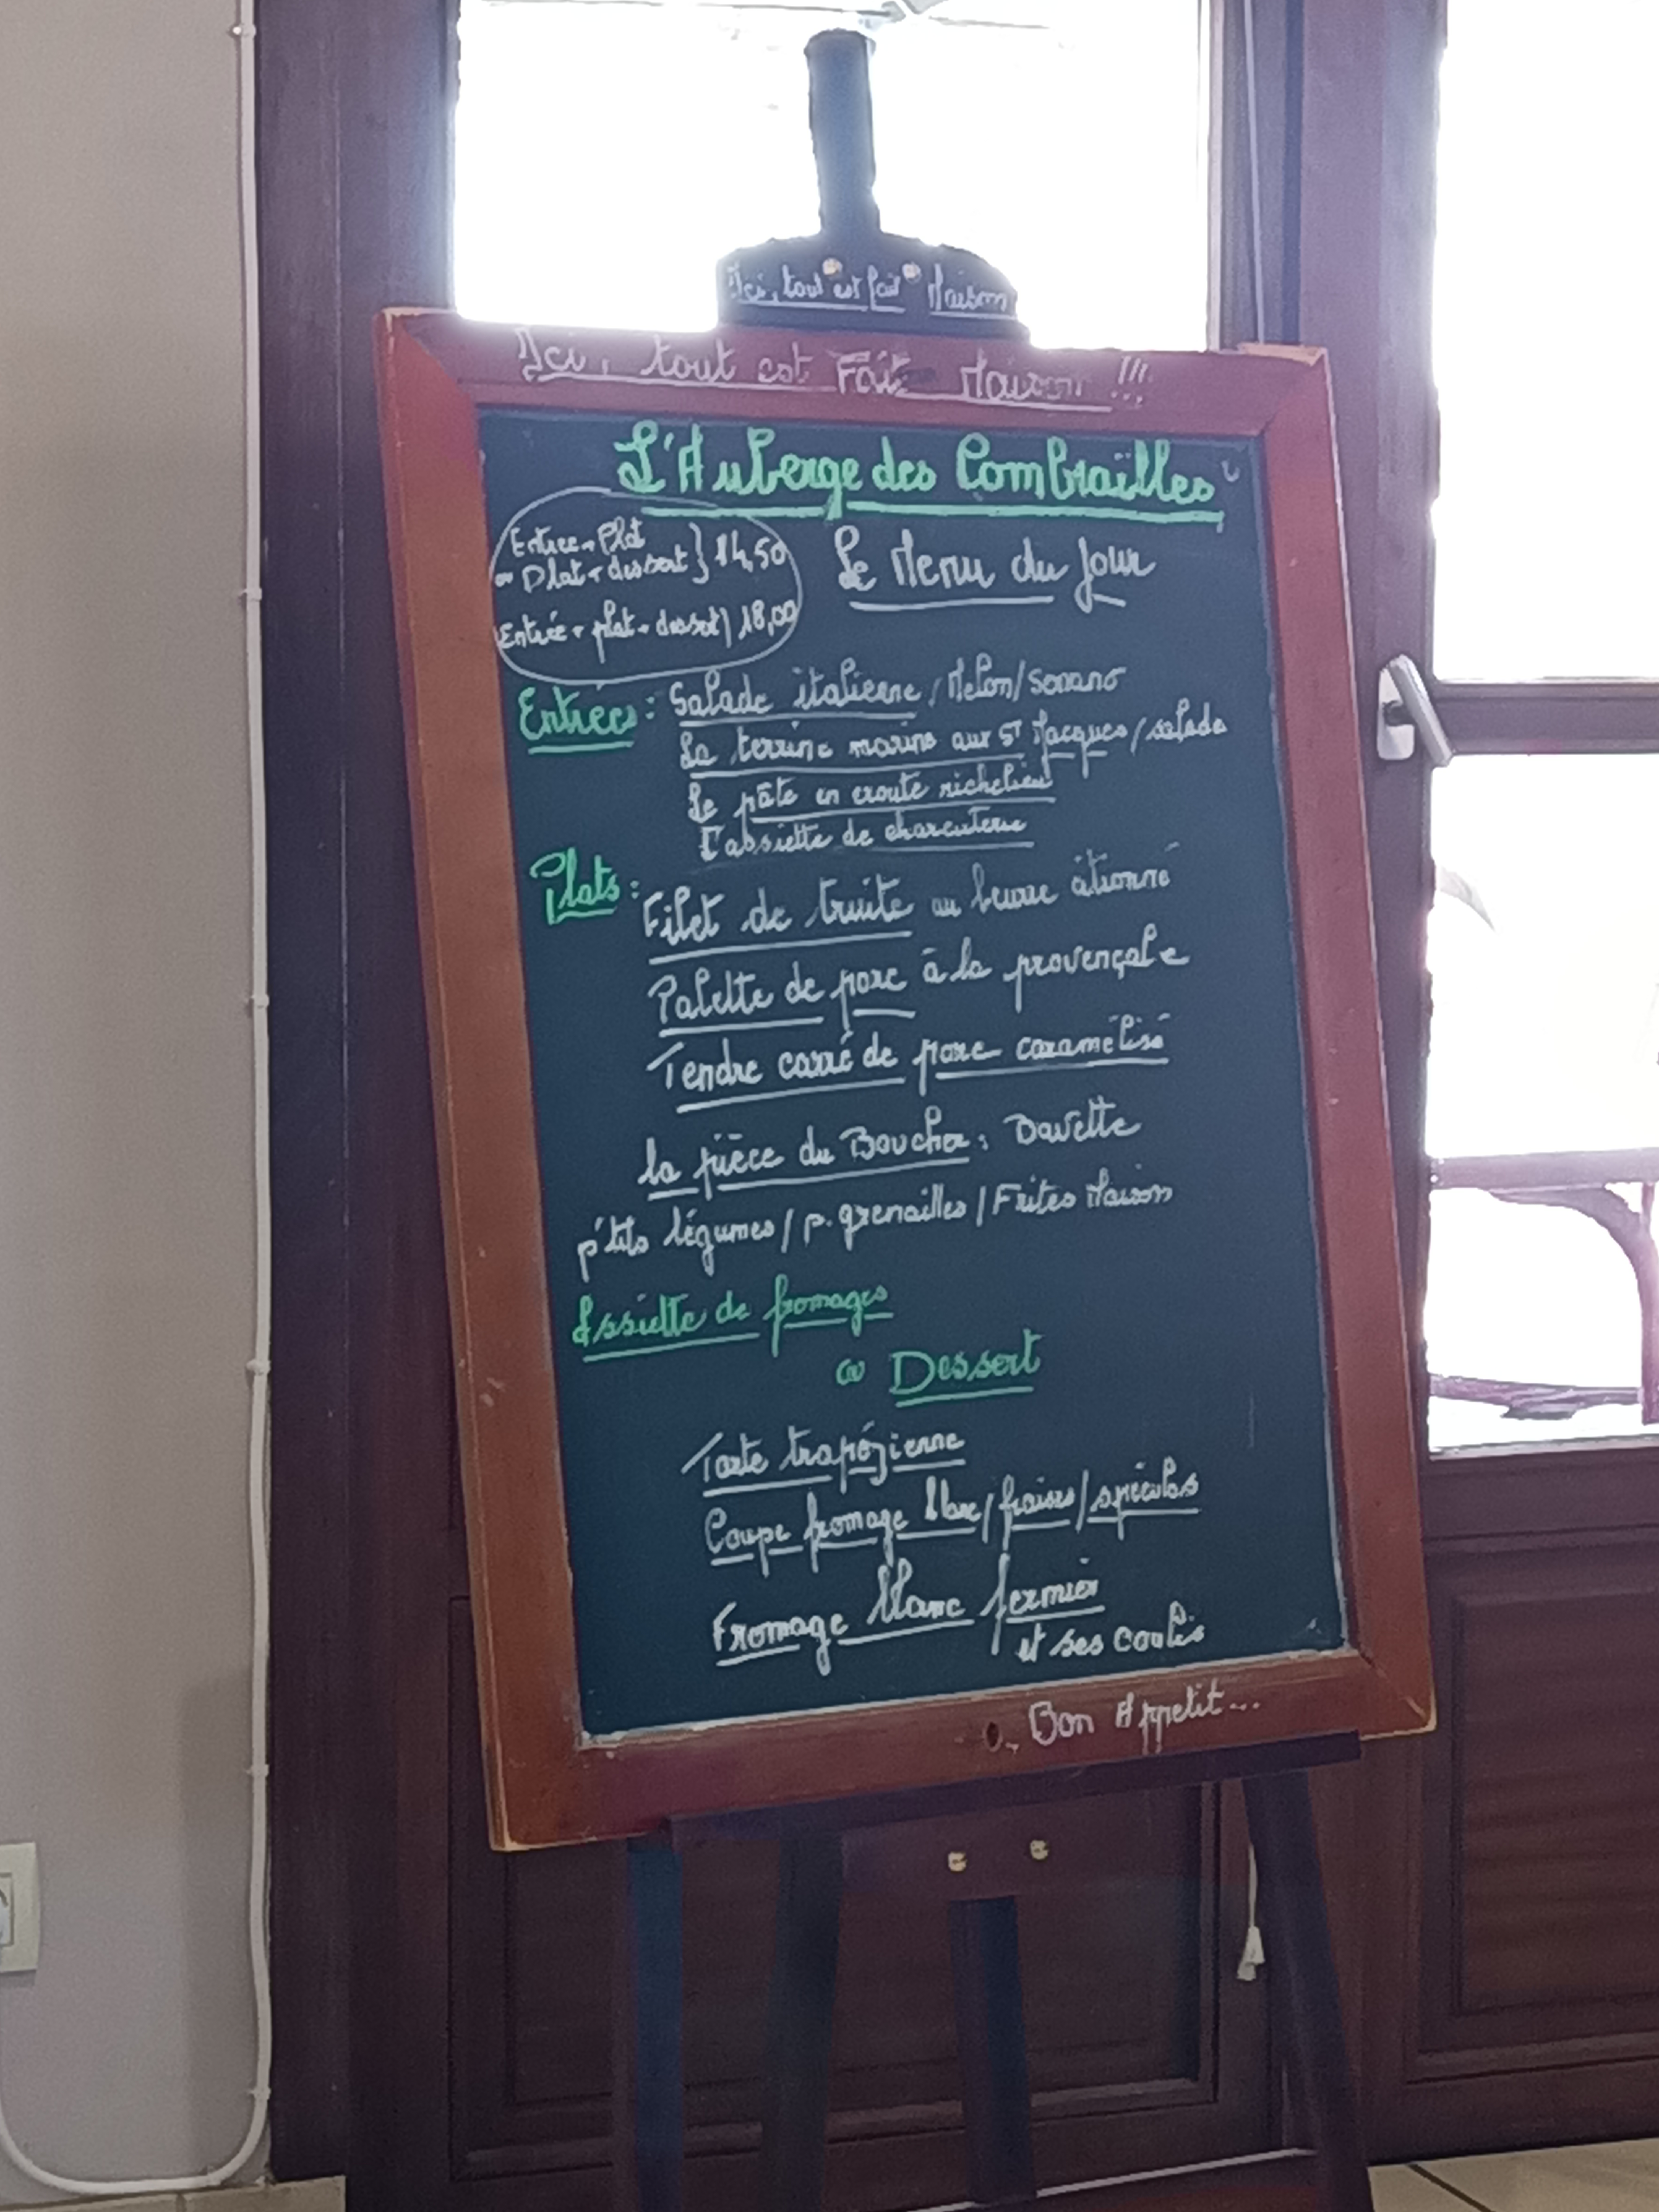 Ici, tout est fait Maison
Ici, tout est Fait Maison !!!
L'Auberge des Combrailles
Entrée + Plat
ou Plat + dessert } 14,50
Entrée + plat + dessert) 18,00
Le Menu du Jour
Entrées : Salade italienne / Melon / Serrano
La terrine marine aux St Jacques / salade
Le pâté en croute richelieu
L'assiette de charcuterie
Plats :
Filet de truite au beurre citronné
Palette de porc à la provençale
Tendre carré de porc caramélisé
la pièce du Boucher : Bavette
p'tits légumes / p. grenailles / Frites Maison
Assiette de fromages
ou Dessert
Tarte tropézienne
Coupe fromage blanc / fraises / spéculos
Fromage blanc fermier
et ses coulis
Bon Appetit...